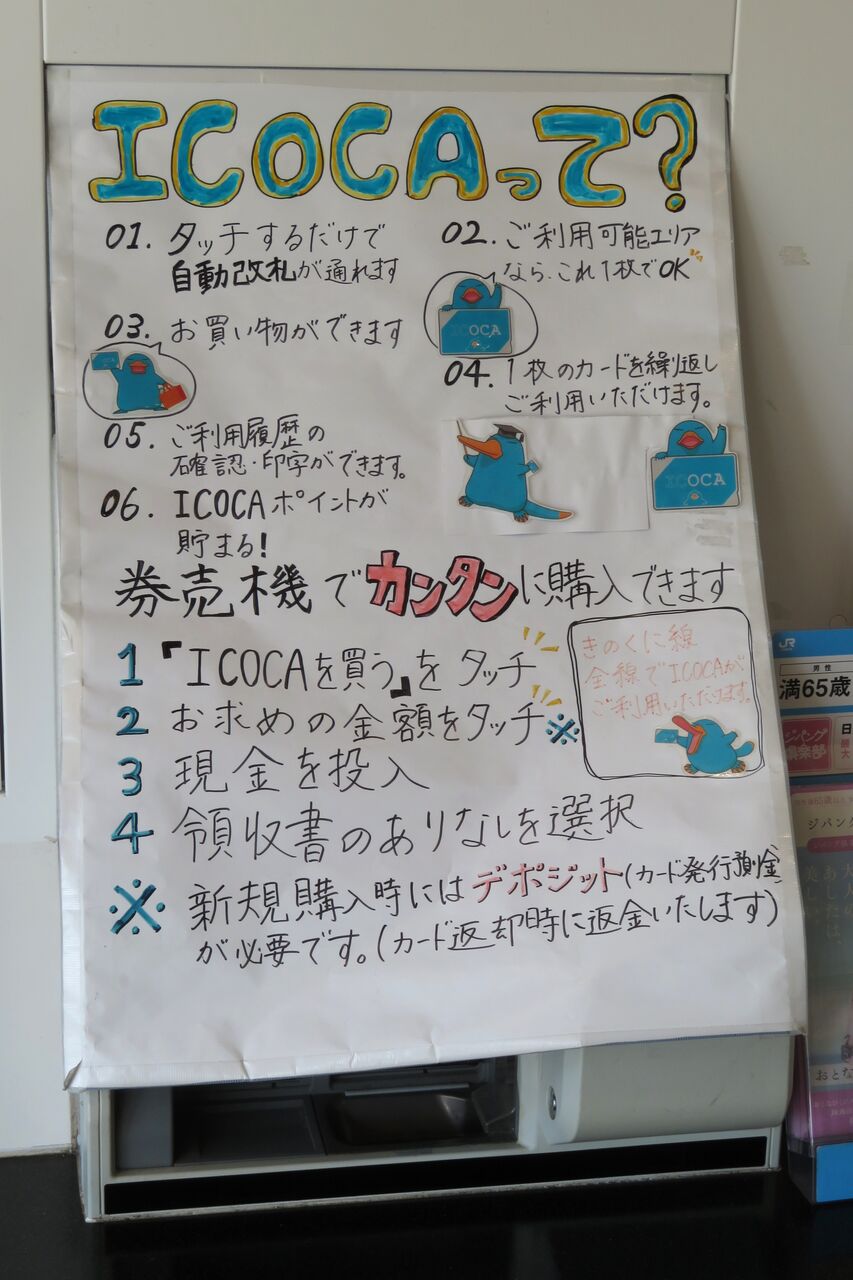 ICOCAって?
01. タッチするだけで
自動改札が通れます
02. ご利用可能エリア
なら、これ1枚でOK
03. お買い物ができます
ICOCA
04. 1枚のカードを繰り返し
ご利用いただけます。
05. ご利用履歴の
確認・印字ができます。
ICOCA
06. ICOCAポイントが
貯まる!
券売機でカンタンに購入できます
きのくに線
全線でICOCAが
ご利用いただけます。
1 「ICOCAを買う」をタッチ
2 お求めの金額をタッチ※
3 現金を投入
4 領収書のありなしを選択
※ 新規購入時にはデポジット(カード発行預り金)
が必要です。(カード返却時に返金いたします)
JR
男性
満65歳
ジパング
倶楽部
ジパング
おとな